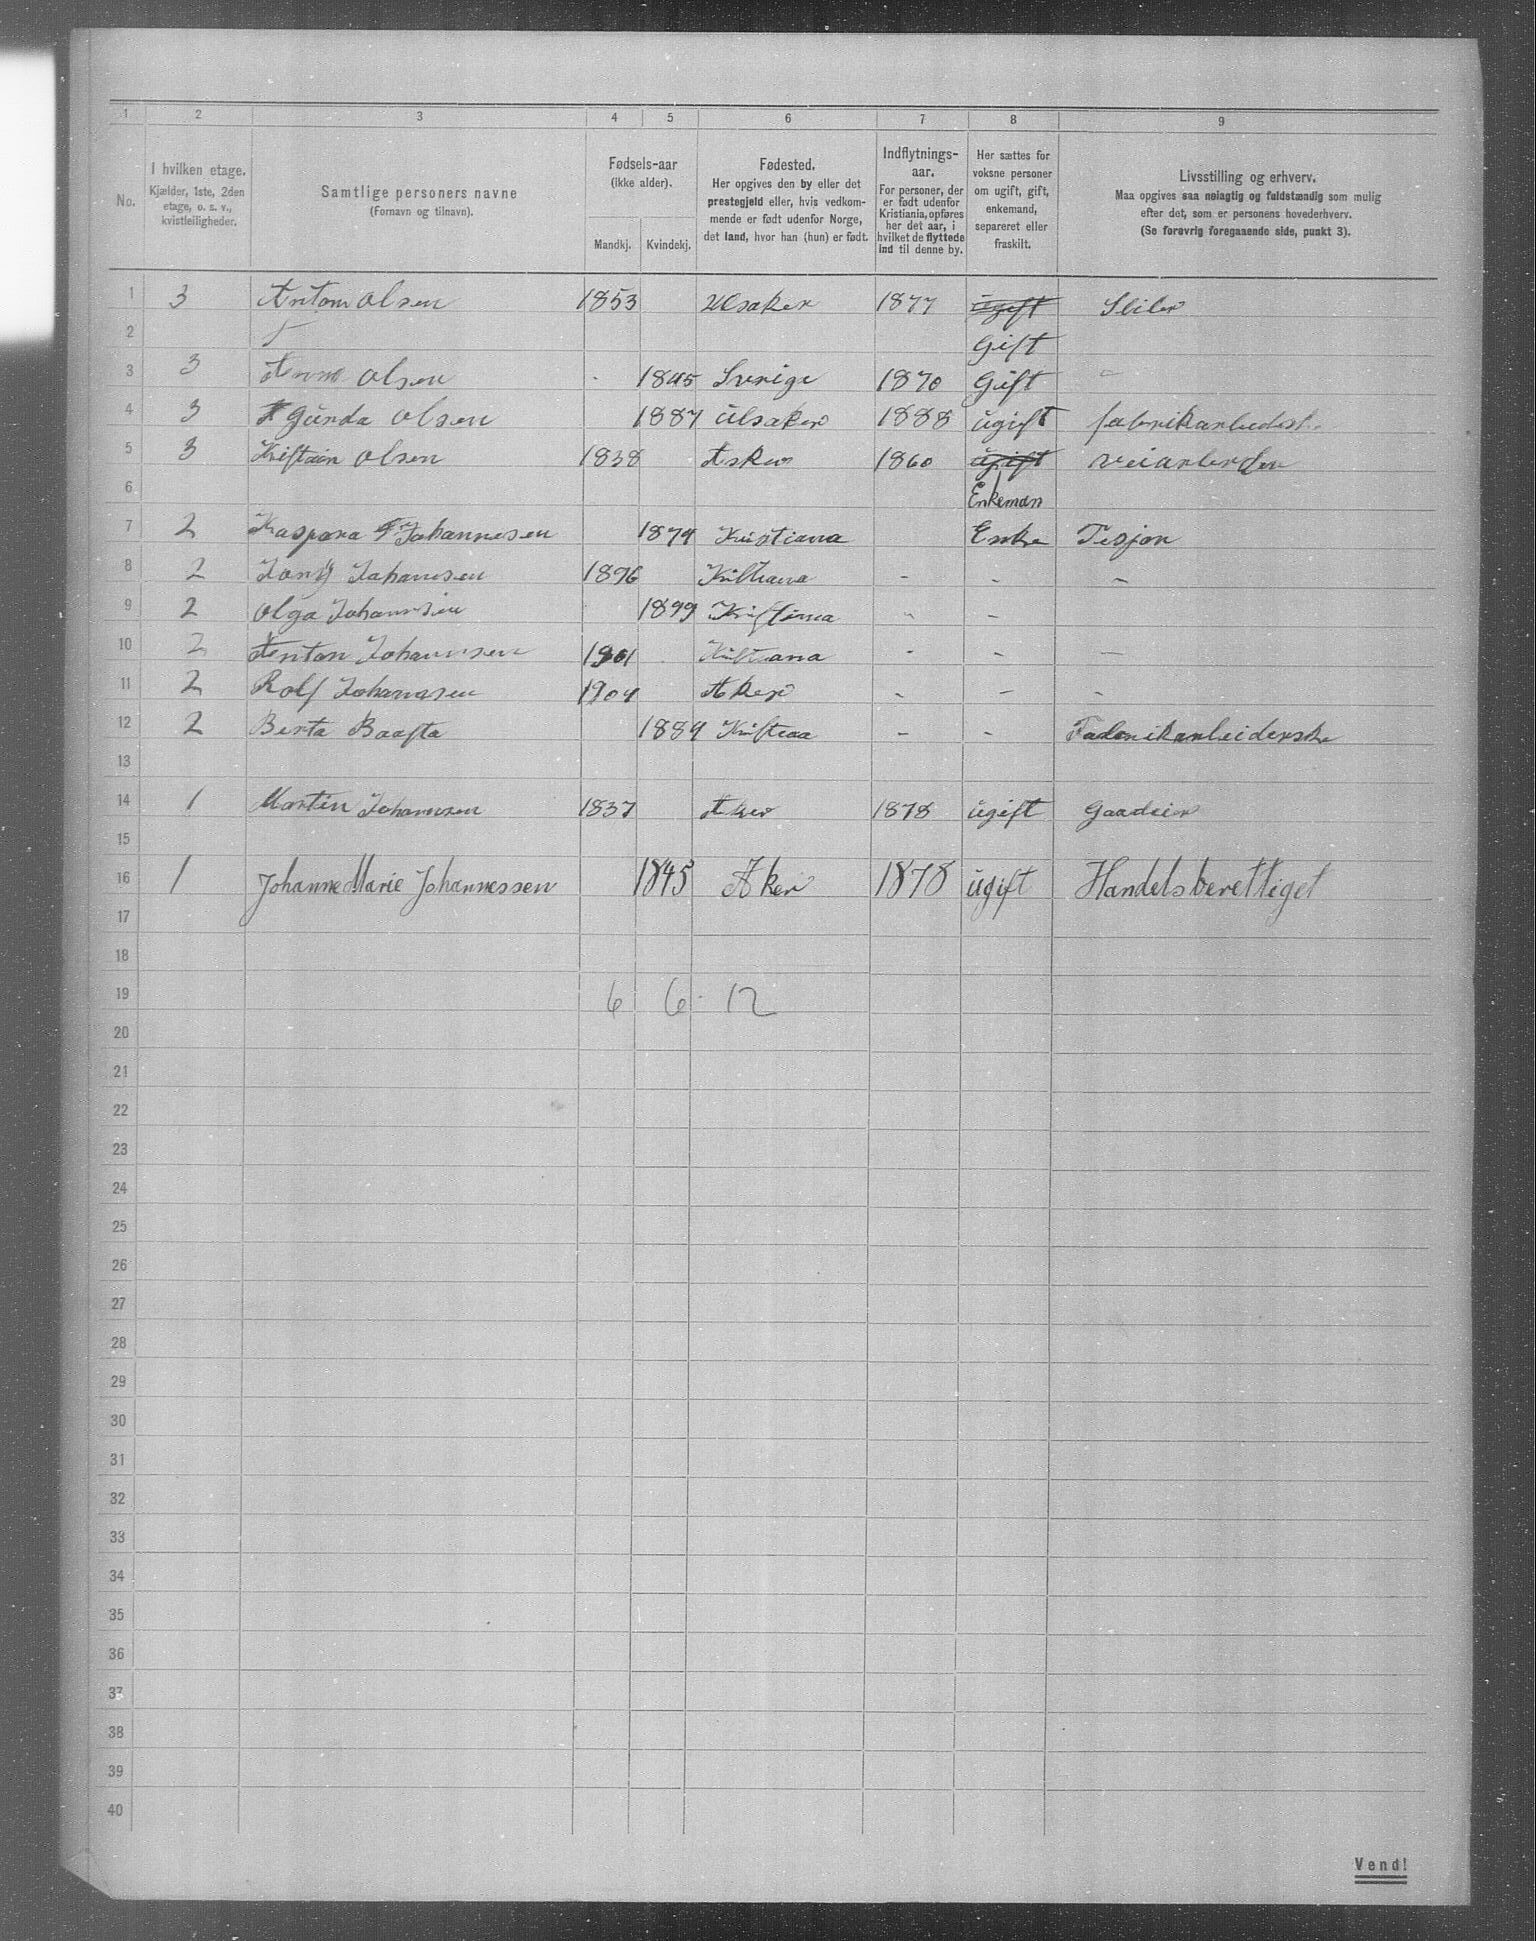 1 2 3 4 5 6 7 8 9
No.
I hvilken etage.
Kjælder, 1ste, 2den
etage, o. s. v.,
kvistleiligheder.
Samtlige personers navne
(Fornavn og tilnavn).
Fødsels-aar
(ikke alder).
Mandkj. Kvindekj.
Fødested.
Her opgives den by eller det
prestegjeld eller, hvis vedkom-
mende er født udenfor Norge,
det land, hvor han (hun) er født.
Indflytnings-
aar.
For personer, der
er født udenfor
Kristiania, opføres
her det aar, i
hvilket de flyttede
ind til denne by.
Her sættes for
voksne personer
om ugift, gift,
enkemand,
separeret eller
fraskilt.
Livsstilling og erhverv.
Maa opgives saa nøiagtig og fuldstændig som mulig
efter det, som er personens hovederhverv.
(Se forøvrig foregaaende side, punkt 3).
1 3 Anton Olsen 1853 Ulsaker 1877 ugift Sliler
2 Gift
3 3 Anna Olsen 1845 Sverige 1870 Gift
4 3 Gunda Olsen 1887 Ulsaker 1888 ugift
5 3 Olsen 1838 1860 ugift
6 Enkeman
7 2 Kaspara Johannesen 1874 Kristiana Enke Pesjon
8 2 Johannsen 1896 - - -
9 2 Olga Johannsen 1899 - -
10 2 Anton Johannsen 1901 - - -
11 2 Rolf Johannsen 1904 Aker - - -
12 2 Berta Baasta 1889 - - Fabrikarbeiderske
13
14 1 Martin Johannsen 1837 Aker 1878 ugift
15
16 1 Johanne Marie Johannessen 1845 Aker 1878 ugift Handelsberettiget
17
18
19 6 6 12
20
21
22
23
24
25
26
27
28
29
30
31
32
33
34
35
36
37
38
39
40
Vend!